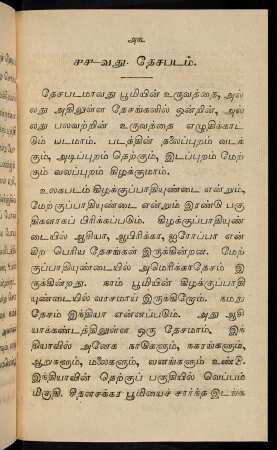 அக
௪௪-வது. தேசபடம்.
தேசபடமாவது பூமியின் உருவத்தை, அல்
லது அதிலுள்ள தேசங்களில் ஒன்றின், அல்
லது பலவற்றின் உருவத்தை எழுதிக்காட்
டும் படமாம். படத்தின் தலைப்புறம் வடக்
கும், அடிப்புறம் தெற்கும், இடப்புறம் மேற்
கும் வலப்புறம் கிழக்குமாம்.
உலகபடம் கிழக்குப்பாதியுண்டை என்றும்,
மேற்குப்பாதியுண்டை என்றும் இரண்டு பகு
திகளாகப் பிரிக்கப்படும். கிழக்குப்பாதியுண்
டையில் ஆசியா, ஆபிரிக்கா, ஐரோப்பா என்
கிற பெரிய தேசங்கள் இருக்கின்றன. மேற்
குப்பாதியுண்டையில் அமெரிக்காதேசம் இ
ருக்கின்றது. நாம் பூமியின் கிழக்குப்பாதி
யுண்டையில் வாசமாய் இருக்கிறோம். நமது
தேசம் இந்தியா எனப்படும். அது ஆசி
யாக்கண்டத்திலுள்ள ஒரு தேசமாம். இந்
தியாவில் அனேக நாடுகளும், நகரங்களும்,
ஆறுகளும், மலைகளும், வனங்களும் உண்டு.
இந்தியாவின் தெற்குப் பகுதியில் வெப்பம்
மிகுதி. சீதளசக்கர பூமியைச் சார்ந்த இடங்க